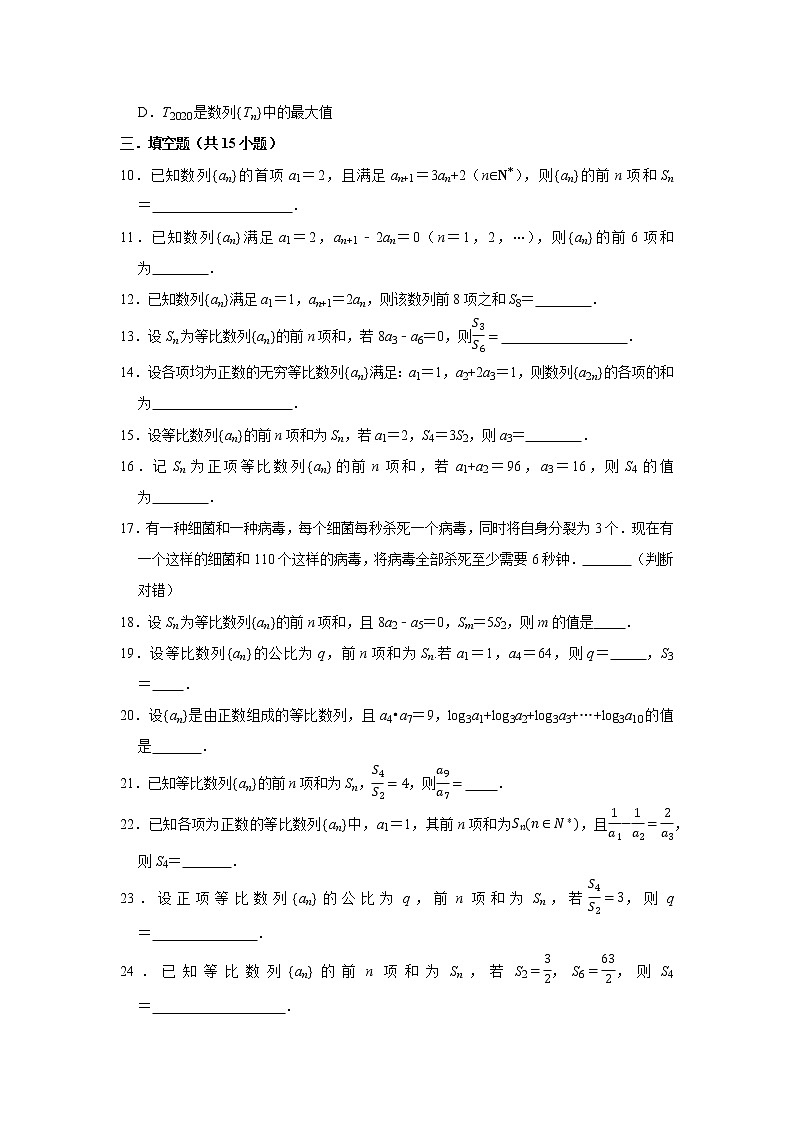 D．T2020是数列{Tn}中的最大值
三．填空题（共15小题）
10．已知数列{an}的首项a1＝2，且满足an+1＝3an+2（n∈N*），则{an}的前n项和Sn
＝____________________．
11．已知数列{an}满足a1＝2，an+1﹣2an＝0（n＝1，2，…），则{an}的前6项和
为________．
12．已知数列{an}满足a1＝1，an+1＝2an，则该数列前8项之和S8＝________．
13．设Sn为等比数列{an}的前n项和，若8a3﹣a6＝0，则S3/S6＝__________________．
14．设各项均为正数的无穷等比数列{an}满足：a1＝1，a2+2a3＝1，则数列{a2n}的各项的和
为____________________．
15．设等比数列{an}的前n项和为Sn，若a1＝2，S4＝3S2，则a3＝________．
16．记Sn为正项等比数列{an}的前n项和，若a1+a2＝96，a3＝16，则S4的值
为________．
17．有一种细菌和一种病毒，每个细菌每秒杀死一个病毒，同时将自身分裂为3个．现在有
一个这样的细菌和110个这样的病毒，将病毒全部杀死至少需要6秒钟．_______（判断
对错）
18．设Sn为等比数列{an}的前n项和，且8a2﹣a5＝0，Sm＝5S2，则m的值是____．
19．设等比数列{an}的公比为q，前n项和为Sn.若a1＝1，a4＝64，则q＝_____，S3
＝____．
20．设{an}是由正数组成的等比数列，且a4•a7＝9，log3a1+log3a2+log3a3+…+log3a10的值
是_______．
21．已知等比数列{an}的前n项和为Sn，S4/S2＝4，则a9/a7＝____．
22．已知各项为正数的等比数列{an}中，a1＝1，其前n项和为Sn(n∈N*)，且1/a1−1/a2＝2/a3，
则S4＝_______．
23．设正项等比数列{an}的公比为q，前n项和为Sn，若S4/S2＝3，则q
＝_______________．
24．已知等比数列{an}的前n项和为Sn，若S2＝3/2，S6＝63/2，则S4
＝___________________．